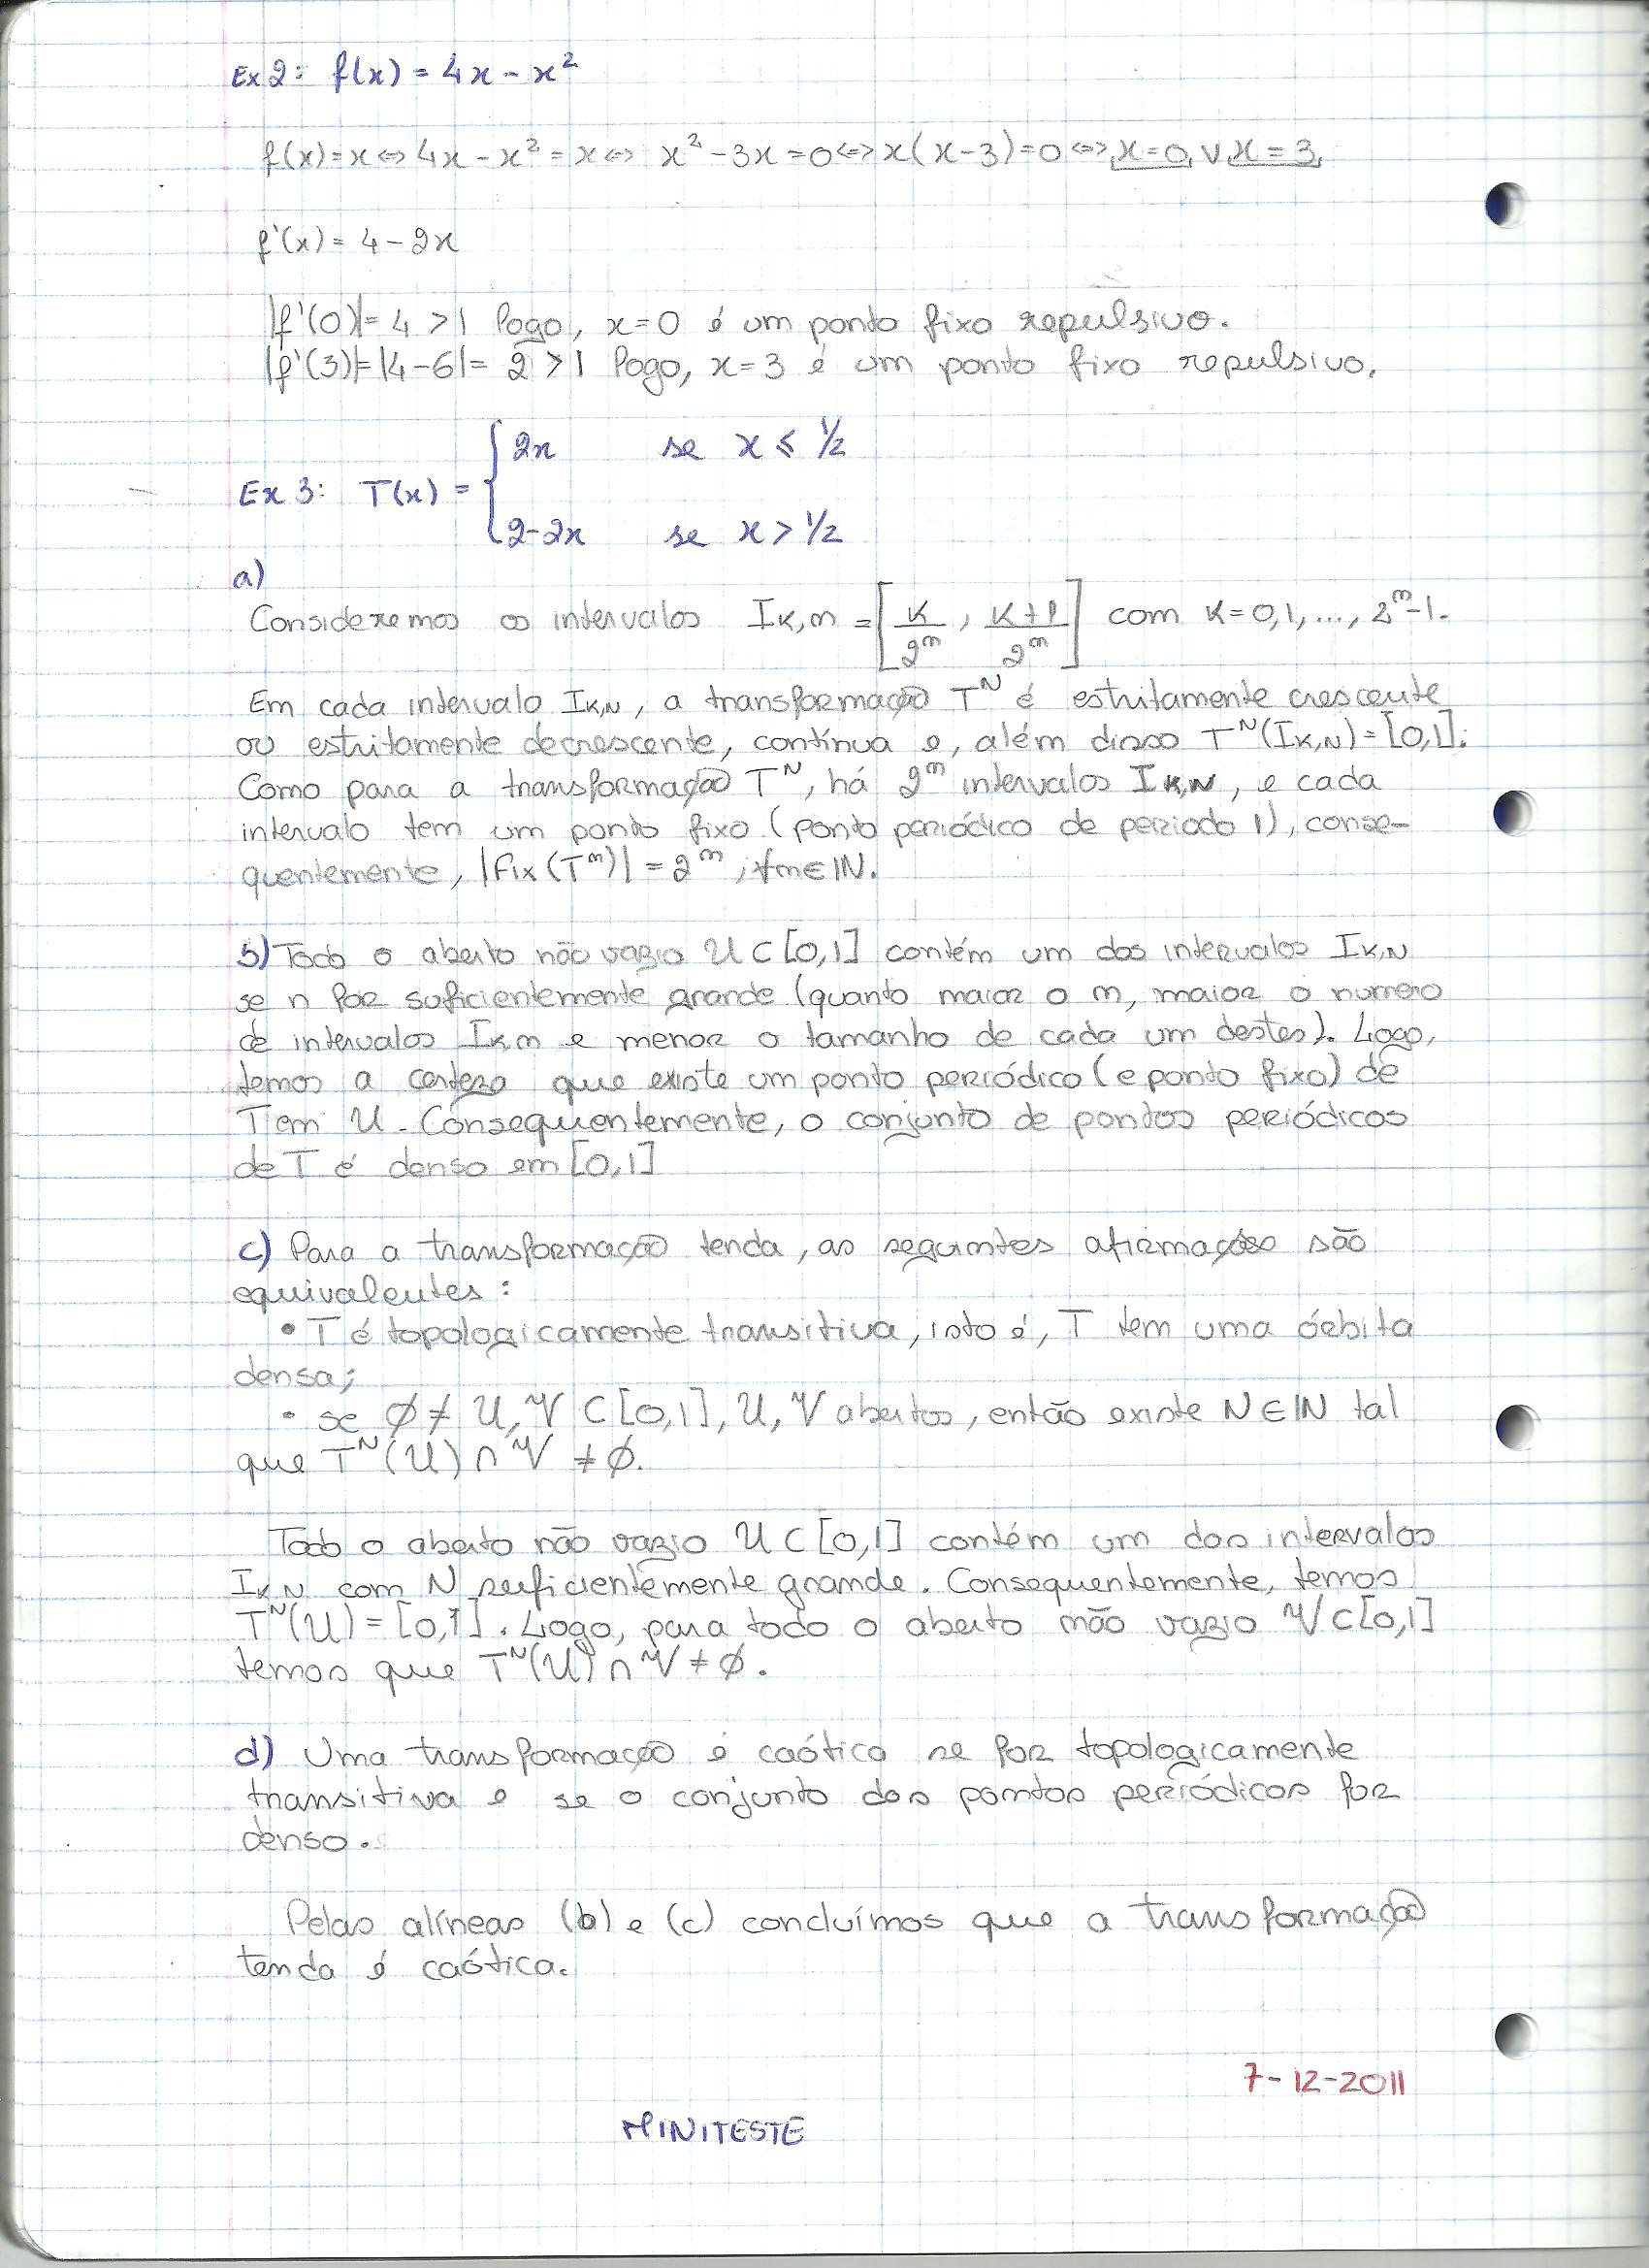 Ex 2: f(x) = 4x - x²
f(x) = x ⇔ 4x - x² = x ⇔ x² - 3x = 0 ⇔ x(x-3) = 0 ⇔ x = 0 ∨ x = 3
f'(x) = 4 - 2x
|f'(0)| = 4 > 1 logo, x = 0 é um ponto fixo repulsivo.
|f'(3)| = |4-6| = 2 > 1 logo, x = 3 é um ponto fixo repulsivo.
2x se x ≤ 1/2
Ex 3: T(x) = {
2-2x se x > 1/2
a)
Consideremos os intervalos I_{K,n} = [K/2^n, (K+1)/2^n] com K = 0,1,..., 2^n-1.
Em cada intervalo I_{K,N}, a transformação T^N é estritamente crescente
ou estritamente decrescente, contínua e, além disso T^N(I_{K,N}) = [0,1].
Como para a transformação T^N, há 2^n intervalos I_{K,N}, e cada
intervalo tem um ponto fixo (ponto periódico de período 1), conse-
quentemente, |Fix(T^n)| = 2^n, ∀n∈ℕ.
b) Todo o aberto não vazio U ⊂ [0,1] contém um dos intervalos I_{K,N}
se n for suficientemente grande (quanto maior o n, maior o numero
de intervalos I_{K,n} e menor o tamanho de cada um destes). Logo,
temos a certeza que existe um ponto periódico (e ponto fixo) de
T em U. Consequentemente, o conjunto de pontos periódicos
de T é denso em [0,1]
c) Para a transformação tenda, as seguintes afirmações são
equivalentes:
• T é topologicamente transitiva, isto é, T tem uma órbita
densa;
• se ∅ ≠ U, V ⊂ [0,1], U, V abertos, então existe N ∈ ℕ tal
que T^N(U) ∩ V ≠ ∅.
Todo o aberto não vazio U ⊂ [0,1] contém um dos intervalos
I_{K,N} com N suficientemente grande. Consequentemente, temos
T^N(U) = [0,1]. Logo, para todo o aberto não vazio V ⊂ [0,1]
temos que T^N(U) ∩ V ≠ ∅.
d) Uma transformação é caótica se for topologicamente
transitiva e se o conjunto dos pontos periódicos for
denso.
Pelas alíneas (b) e (c) concluímos que a transformação
tenda é caótica.
7-12-2011
MINITESTE